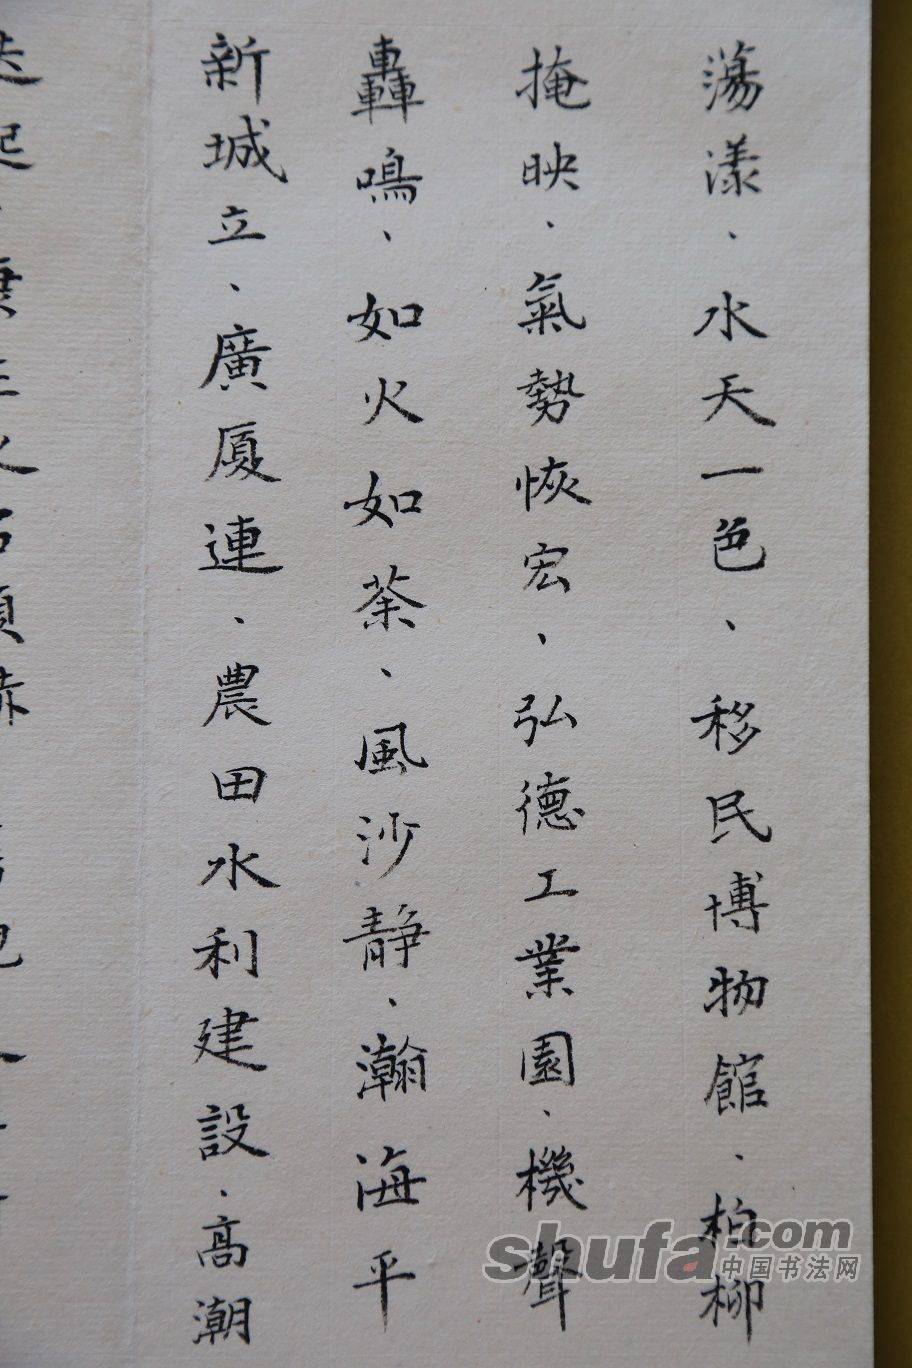 蕩漾、水天一色、移民博物館、柏柳
掩映、氣勢恢宏、弘德工業園、機聲
轟鳴、如火如荼、風沙静、瀚海平
新城立、廣厦連、農田水利建設、高潮
shufa.com
中国书法网